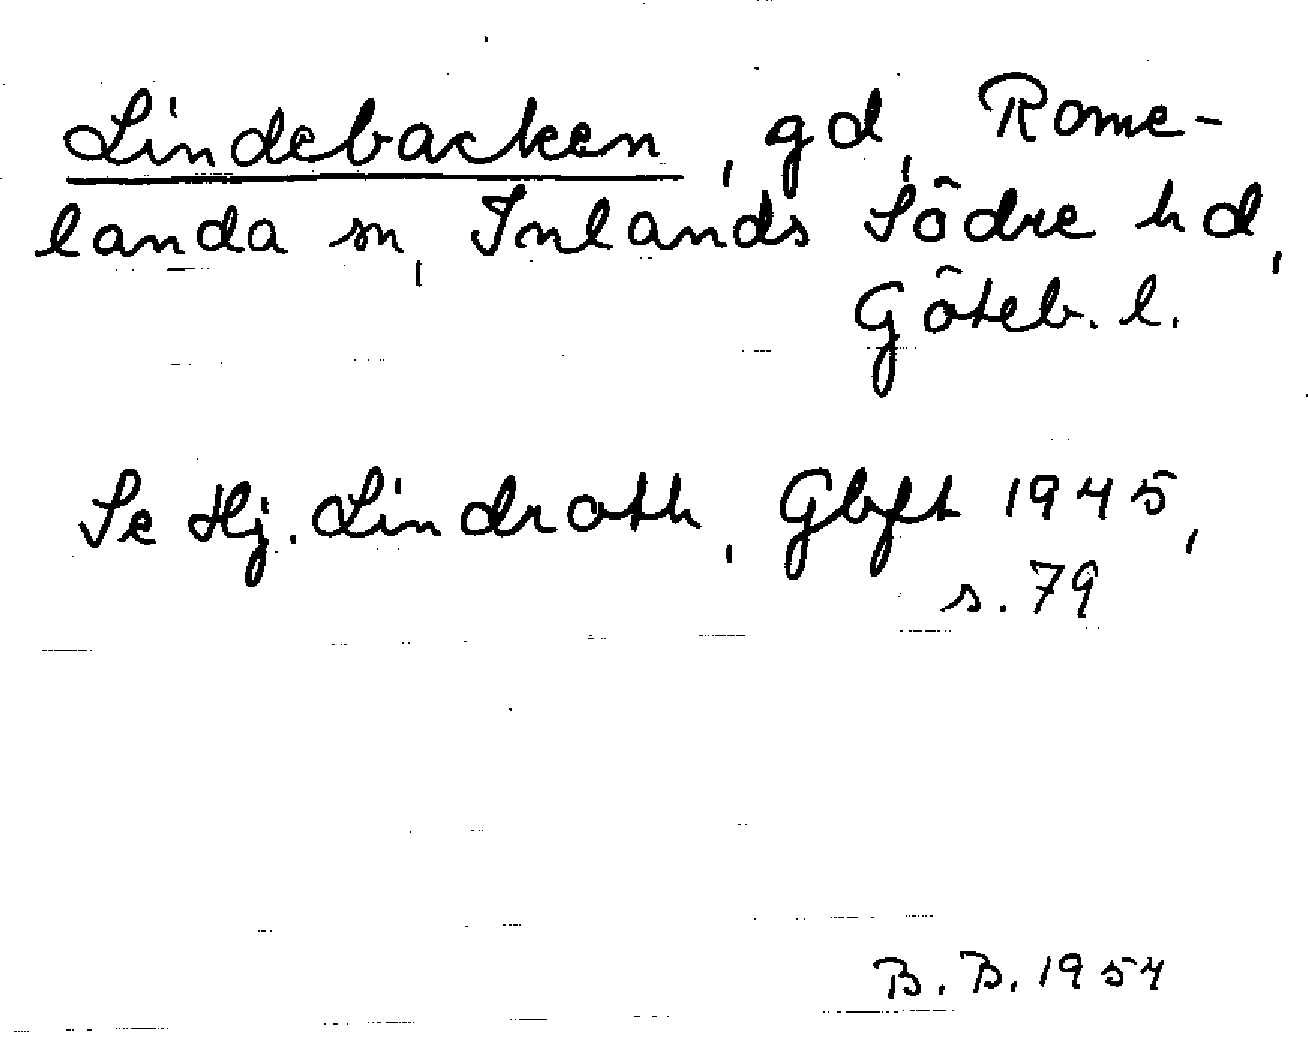 Lindebacken, gd, Rome-
landa sn, Inlands Södre hd,
Göteb. l.
Se Hj. Lindroth, Gbgft 1945,
s. 79
B. B. 1954